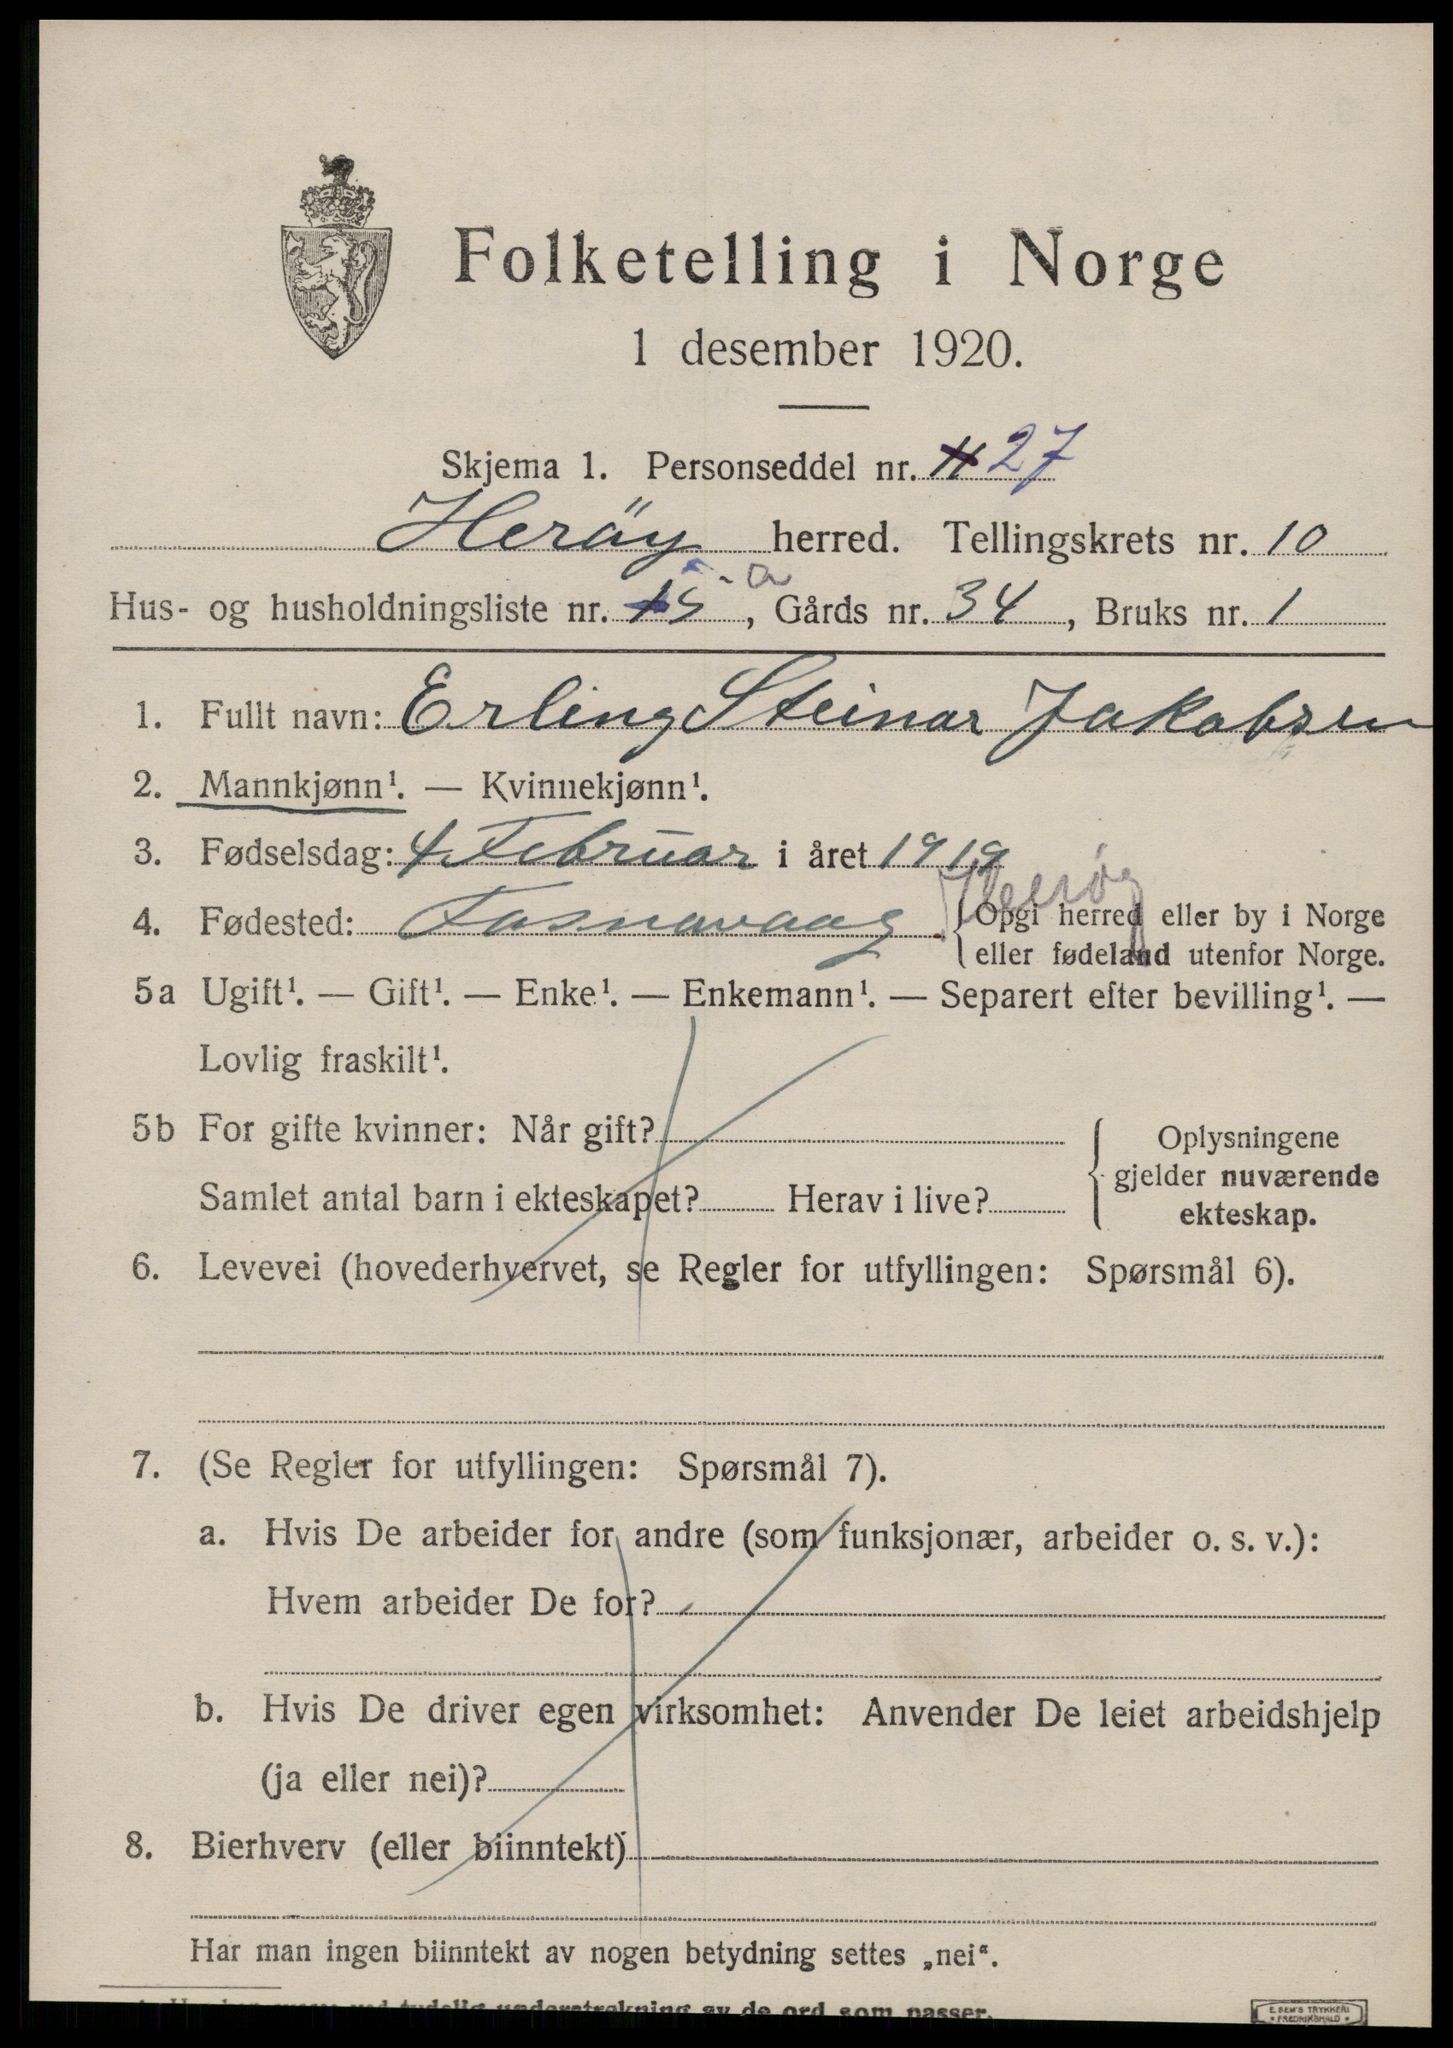 Folketelling i Norge
1 desember 1920.
Skjema 1. Personseddel nr. 11 27
Herøy herred. Tellingskrets nr. 10
Hus- og husholdningsliste nr. 15 a, Gårds nr. 34, Bruks nr. 1
1. Fullt navn: Erling Steinar Jakobsen
2. Mannkjønn¹. — Kvinnekjønn¹.
3. Fødselsdag: 4 Februar i året 1919
4. Fødested: Fosnavaag. Herøy {Opgi herred eller by i Norge
eller fødeland utenfor Norge.
5a Ugift¹. — Gift¹. — Enke¹. — Enkemann¹. — Separert efter bevilling¹. —
Lovlig fraskilt¹.
5b For gifte kvinner: Når gift?
Samlet antal barn i ekteskapet? Herav i live?
Oplysningene
gjelder nuværende
ekteskap.
6. Levevei (hovederhvervet, se Regler for utfyllingen: Spørsmål 6).
7. (Se Regler for utfyllingen: Spørsmål 7).
a. Hvis De arbeider for andre (som funksjonær, arbeider o. s. v.):
Hvem arbeider De for?
b. Hvis De driver egen virksomhet: Anvender De leiet arbeidshjelp
(ja eller nei)?
8. Bierhverv (eller biinntekt)
Har man ingen biinntekt av nogen betydning settes „nei“.
tydelig understrekning av de ord som passer.
E. SEM'S TRYKKERI
FREDRIKSHALD